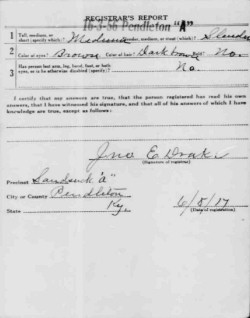 REGISTRAR'S REPORT
16-3-36 Pendleton "A"
1 Tall, medium, or short (specify which)? Medium Slender, medium, or stout (which)? Slender
2 Color of eyes? Brown Color of hair? Dark brown No.
3 Has person lost arm, leg, hand, foot, or both eyes, or is he otherwise disabled (specify)? No.
I certify that my answers are true, that the person registered has read his own
answers, that I have witnessed his signature, and that all of his answers of which I have
knowledge are true, except as follows:
Jno E Drake
(Signature of registrar)
Precinct "A"
City or County Pendleton
State Ky. 6/8/17
(Date of registration)